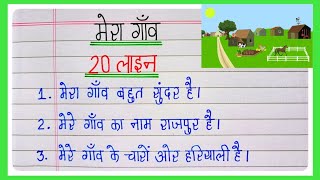 मेरा गाँव
20 लाइन
1. मेरा गाँव बहुत सुंदर है।
2. मेरे गाँव का नाम राजपुर है।
3. मेरे गाँव के चारों ओर हरियाली है।